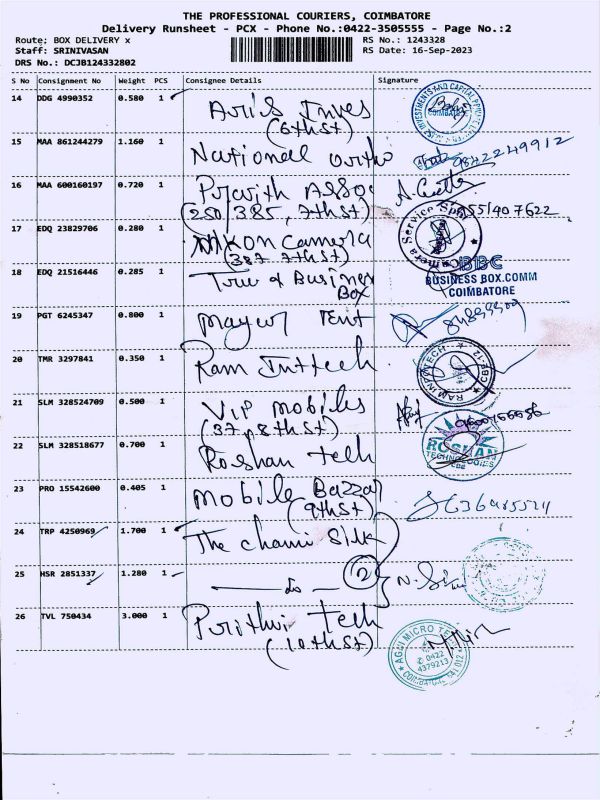 THE PROFESSIONAL COURIERS, COIMBATORE
Delivery Runsheet - PCX - Phone No.:0422-3505555 - Page No.:2
Route; BOX DELIVERY x
RS No.: 1243328
Staff: SRINIVASAN
RS Date: 16-Sep-2023
DRS No.: DCJB124332802
S No Consignment No Weight PCS Consignee Details Signature
14 DDG 4990352 0.580 1 Aris Inves
(6th St)
15 MAA 861244279 1.160 1 National ortho 9842249912
16 MAA 600160197 0.720 1 Pravith Assoc
(250, 385, 7th St)
17 EDQ 23829706 0.280 1 Nikon Camera
(387 7th St)
Camera Service
18 EDQ 21516446 0.285 1 Tower of Business
Box
BBC
BUSINESS BOX.COMM
COIMBATORE
19 PGT 6245347 0.800 1 Mayur Tent
20 TMR 3297841 0.350 1 Ram Inttech
21 SLM 328524709 0.500 1 VIP Mobiles
(37, 8th St)
22 SLM 328518677 0.700 1 Roshan Tech
ROSHAN
TECHNOLOGIES
CBE
23 PRO 15542600 0.405 1 Mobile Bazzar
(9th St)
24 TRP 4250969 1.700 1 The chami Silk
25 HSR 2851337 1.280 1 — do — 2
26 TVL 750434 3.000 1 Prithvi Tech
(10th St)
AGNI MICRO TE
0422
4379213
COIMBATORE 641 012